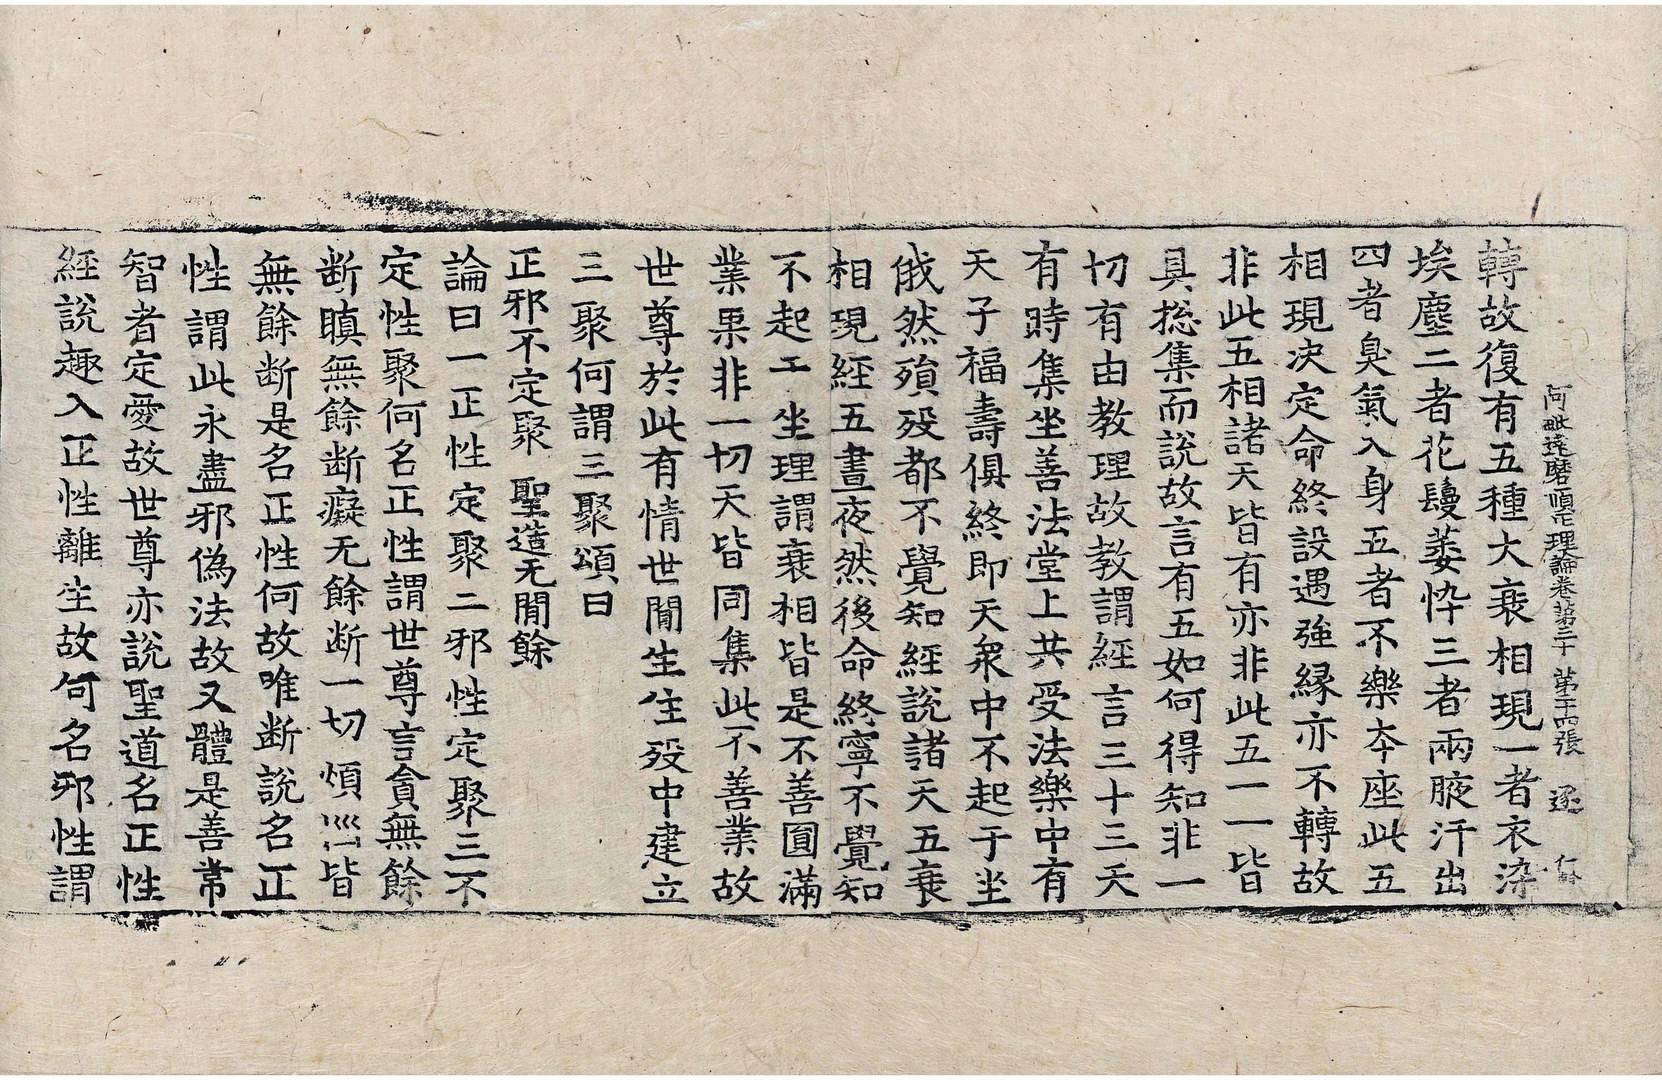 阿毗達磨順正理論卷第三十 第十四張 逐
轉故復有五種大衰相現一者衣染
埃塵二者花鬘萎悴三者兩腋汗出
四者臭氣入身五者不樂夲座此五
相現決定命終設遇強緣亦不轉故
非此五相諸天皆有亦非此五一一皆
具捴集而說故言有五如何得知非一
切有由教理故教謂經言三十三天
有時集坐善法堂上共受法樂中有
天子福壽俱終即天衆中不起于坐
俄然殞歿都不覺知經說諸天五衰
相現經五晝夜然後命終寧不覺知
不起于坐理謂衰相皆是不善圓滿
業果非一切天皆同集此不善業故
世尊於此有情世間生住歿中建立
三聚何謂三聚頌曰
正邪不定聚 聖造无間餘
論曰一正性定聚二邪性定聚三不
定性聚何名正性謂世尊言貪無餘
断瞋無餘断癡无餘断一切煩皆
無餘断是名正性何故唯断說名正
性謂此永盡邪偽法故又體是善常
智者定愛故世尊亦說聖道名正性
經說趣入正性離生故何名邪性謂